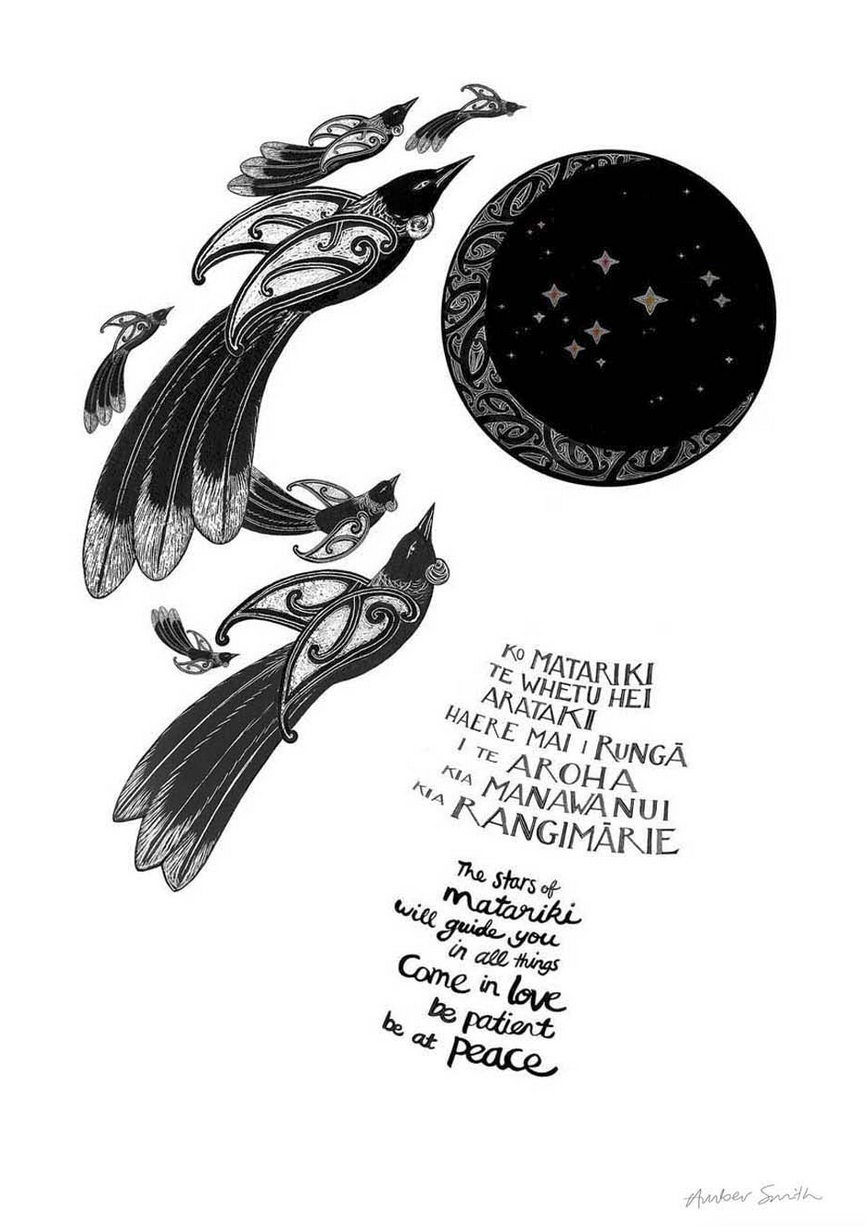 KO MATARIKI
TE WHETU HEI
ARATAKI
HAERE MAI I RUNGĀ
I TE AROHA
KIA MANAWANUI
KIA RANGIMĀRIE
The stars of
matariki
will guide you
in all things
Come in love
be patient
be at peace
Amber Smith